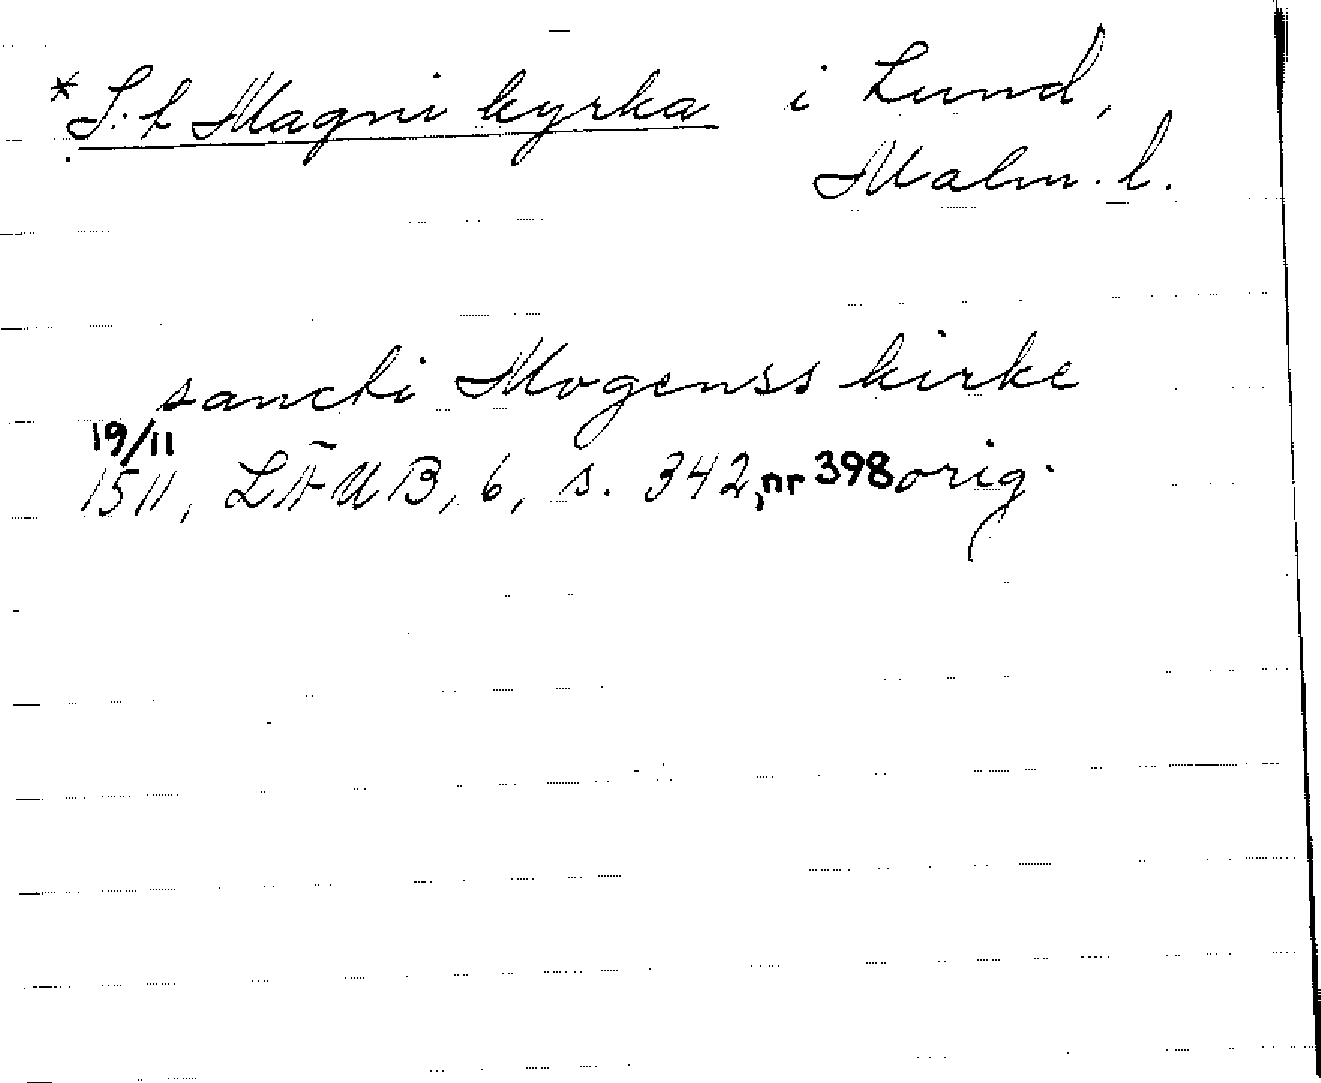 *S:t Magni kyrka i Lund,
Malm. l.
sancti Mogenss kirke
19/11
1511, LÄUB, 6, s. 342, nr 398 orig.